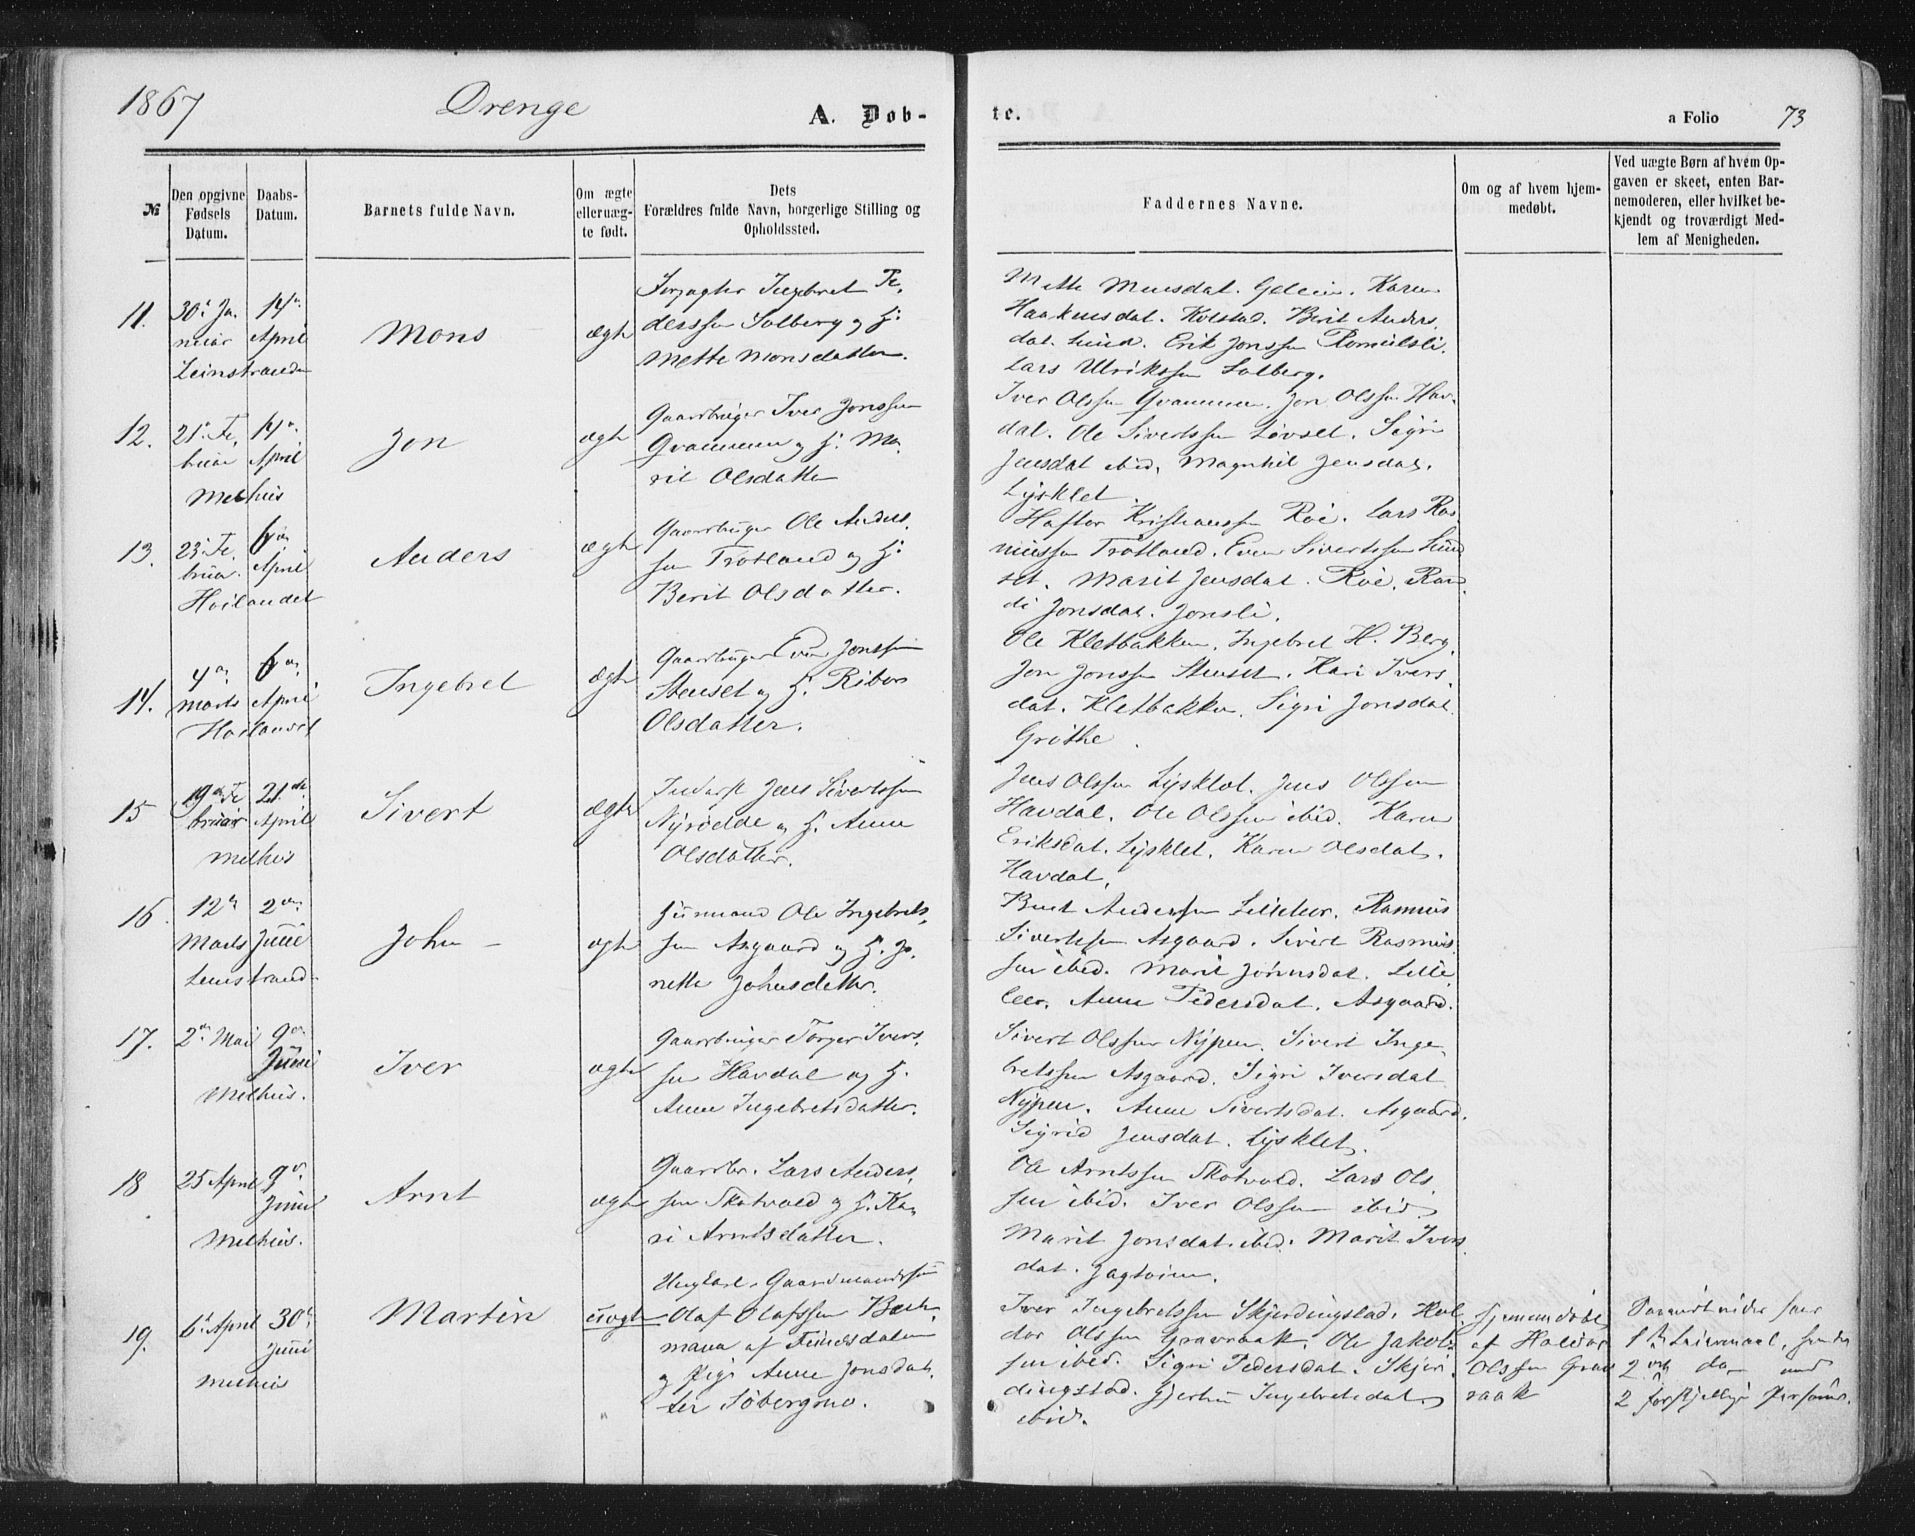 1867 Drenge A. Dob-
te. a Folio 73
№
Den opgivne Fødsels Datum.
Daabs-Datum.
Barnets fulde Navn.
Om ægte eller uæg-te født.
Dets Forældres fulde Navn, borgerlige Stilling og Opholdssted.
Faddernes Navne.
Om og af hvem hjem-medøbt.
Ved uægte Børn af hvem Op-gaven er skeet, enten Bar-nemoderen, eller hvilket be-kjendt og troværdigt Med-lem af Menigheden.
11. 30' Ja- 14'
nuar April
Leinstranden
Mons
ægte
Forpagter Ingebret Pe-
dersen Solberg og H:
Mette Monsdatter.
Mette Monsdat. Karen
Haakensdat. Kolstad. Berit Anders-
dat. Lund. Erik Jonssen Romulsli.
Lars Ulrikssen Solberg.
12. 21' Fe- 14'
bruar April
Melhus
Jon
ægte
Gaardbruger Iver Jonssen
Gvammen og H: Ma-
rit Olsdatter
Iver Olssen Gvammen. Jon Olssen Hav-
dal. Ole Sivertssen Løvset. Sigri
Jensdat ibid. Magnhil Jensdat.
Lysklet
13. 23' Fe-
bruar April
Hoilandet
Anders
ægte
Gaardbruger Ole Anders-
sen Trotland og H:
Berit Olsdatter.
Haftor Kristianssen Roe. Lars Ras-
mussen Trotland. Even Sivertssen Lund-
set. Marit Jensdat. Roe. Ran-
di Jonsdat. Jonsli.
14. 4'
marts April
Hoilandet
Ingebret
ægte
Gaardbruger Even Jonssen
Stenset og H. Ribor
Olsdatter.
Ole Kletbakken. Ingebret H. Berg.
Jon Jonssen Stenset. Kari Ivers-
dat. Kletbakken. Sigri Jonsdat.
Grothe.
15 19de Fe- 21de
bruar April
Melhus
Sivert
ægte
Inderst Jens Sivertssen
Nyrødde og H. Anne
Olsdatter.
Jens Olssen Lysklet. Jens Olssen
Havdal. Ole Olssen ibid. Karen
Eriksdat. Lysklet. Karen Olsdat.
Havdal.
16. 12' 2'
Marts Juni
Leinstrand
John -
ægte
Huusmand Ole Ingebrets-
sen Asgaard og H. Jo-
nette Johnsdatter.
Berit Andersen Lilleleer. Rasmus
Sivertssen Asgaard. Sivert Rasmus-
sen ibid. Marit Johnsdat. Lille-
leer. Anne Pedersdat. Asgaard.
17. 2' Mai 9'
Juni
Melhus.
Iver
ægte
Gaardbruger Torger Ivers-
sen Havdal og H.
Anne Ingebretsdatter.
Sivert Olssen Nypen. Sivert Inge-
bretssen Asgaard. Sigri Iversdat
Nypen. Anne Sivertsdat. Asgaard.
Sigrid Jensdat. Lysklet.
18 25 April 9'
Juni
Melhus.
Arnt
ægte
Gaardbr. Lars Anders-
sen Skotvold og H. Ka-
ri Arntsdatter.
Ole Arntssen Skotvold. Lars Ols-
sen ibid. Iver Olssen ibid
Marit Jonsdat. ibid. Marit Ivers-
dat. Jagtoien.
19. 6' April 30'
Juni
Melhus
Martin
uægte
Ungkarl Gaardmandssøn
Olaf Olafssen
af Fines
og Pige Anne Jonsdat-
ter Søbergmo.
Iver Ingebretssen Skjerdingstad. Hal-
dor Olssen Gravraak. Ole Jakob-
sen ibid. Sigri Pedersdat. Skjer-
dingstad. Gjertru Ingebretsdat.
ibid.
Hjemmedøbt
af Haldor
Olssen Grav
raak
1' Leiermaal, hendes
2' do med
2 forskjellige Personer.